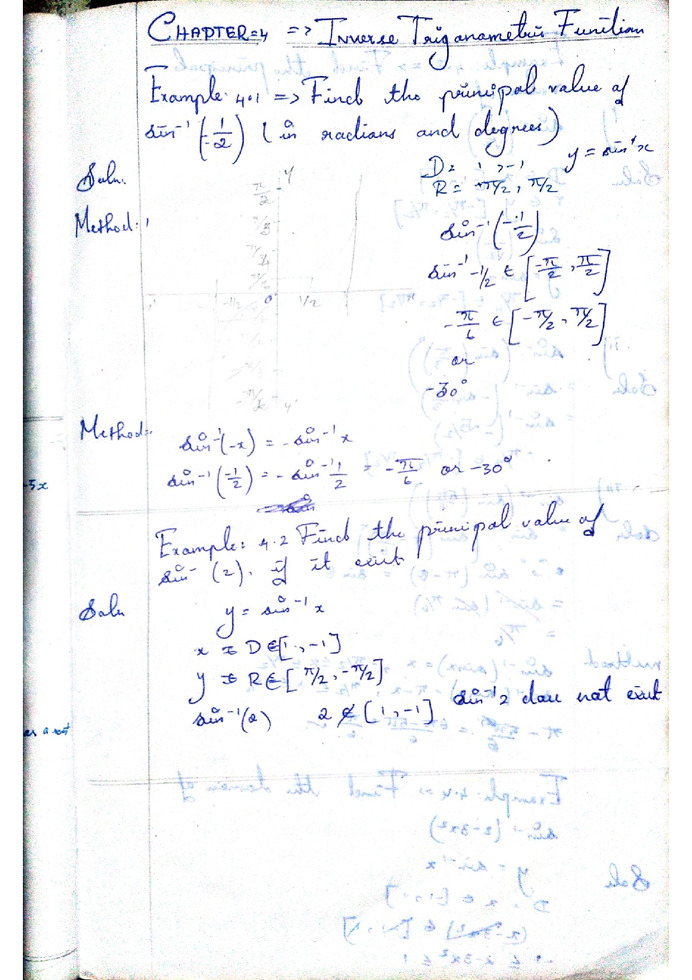 CHAPTER=4 => Inverse Trigonametric Function
Example: 4.1 => Find the principal value of
sin⁻¹ (-1/2) (in radians and degrees)
Soln.
D= 1, -1 y = sin⁻¹x
R= -π/2, π/2
Method: 1
sin⁻¹(-1/2)
sin⁻¹ -1/2 ∈ [-π/2, π/2]
-π/6 ∈ [-π/2, π/2]
or
-30°
π/2 y
π/3
π/4
π/6
-1/2 0 1/2
-π/2 y'
Method:
sin⁻¹(-x) = -sin⁻¹x
sin⁻¹(-1/2) = -sin⁻¹ 1/2 = -π/6 or -30°
-3x
Example: 4.2 Find the principal value of
sin⁻ (2). if it exit
Soln
y = sin⁻¹x
x ∈ D∈[1, -1]
y ∈ R∈[π/2, -π/2]
sin⁻¹(2) 2 ∉ [1, -1] sin⁻¹2 does not exit
as a